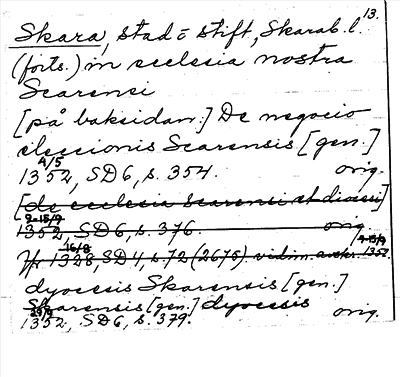 13.
Skara, stad o stift, Skarab. l.
(forts.) in ecclesia nostra
Scarensi
[på baksidan:] De negocio
eleccionis Scarensis [gen.]
4/5
1352, SD6, s. 354. orig.
[de ecclesia Scarensi et diocesi]
9-15/9
1352, SD6, s. 376. orig.
16/8 9-15/9
Yfr 1328, SD4, s. 72 (2675) vidim. 1352
dyocesis Skarensis [gen.]
Skarensis [gen.] dyocesis
1352, SD6, s. 379. orig.